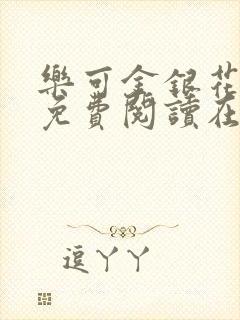 樂可金銀花
免費閱讀在
逗丫丫